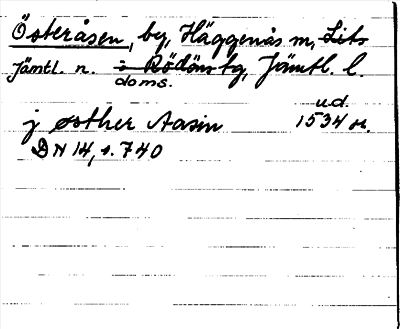 Österåsen, by, Häggenås sn, Lits
Jämtl. n. i Rödöns tg, Jämtl. l.
doms.
u.d.
j østher Aasin 1534 or.
DN 14, s. 740